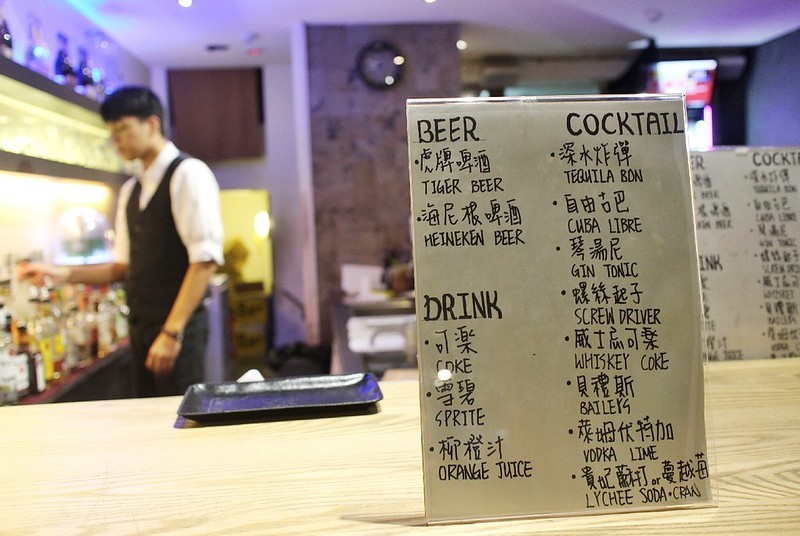 BEER
·虎牌啤酒
TIGER BEER
·海尼根啤酒
HEINEKEN BEER
DRINK
·可樂
COKE
·雪碧
SPRITE
·柳橙汁
ORANGE JUICE
COCKTAIL
·深水炸彈
TEQUILA BON
·自由古巴
CUBA LIBRE
·琴湯尼
GIN TONIC
·螺絲起子
SCREW DRIVER
·威士忌可樂
WHISKEY COKE
·貝禮斯
BAILEYS
·萊姆伏特加
VODKA LIME
·貴妃蘇打or蔓越莓
LYCHEE SODA·CRAN
ER
牌啤酒
BEER
根啤酒
BEER
NK
JUICE
COCKTA
·深水炸彈
TEQUILA BON
·自由古巴
CUBA LIBRE
·琴湯尼
GIN TONIC
·螺絲起
SCREW DR
·威士忌
WHISKEY
·貝禮斯
BAILEYS
·萊姆伏
VODKA